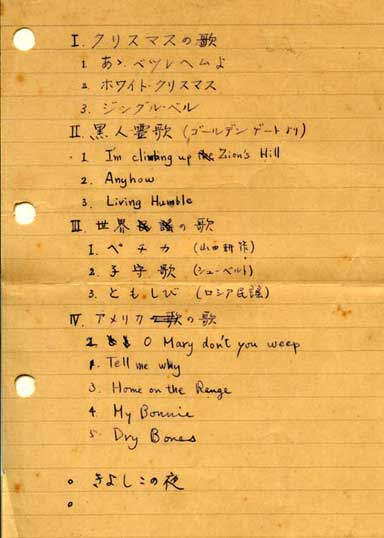 I. クリスマスの歌
1. あゝ、ベツレヘムよ
2. ホワイト・クリスマス
3. ジングル・ベル
II. 黒人霊歌 (ゴールデンゲートより)
1 I'm climbing up Zion's Hill
2. Anyhow
3. Living Humble
III. 世界の歌
1. ペチカ (山田耕筰)
2. 子守歌 (シューベルト)
3. ともしび (ロシア民謡)
IV. アメリカの歌
2. O Mary don't you weep
1. Tell me why
3. Home on the Range
4. My Bonnie
5. Dry Bones
o きよしこの夜
o